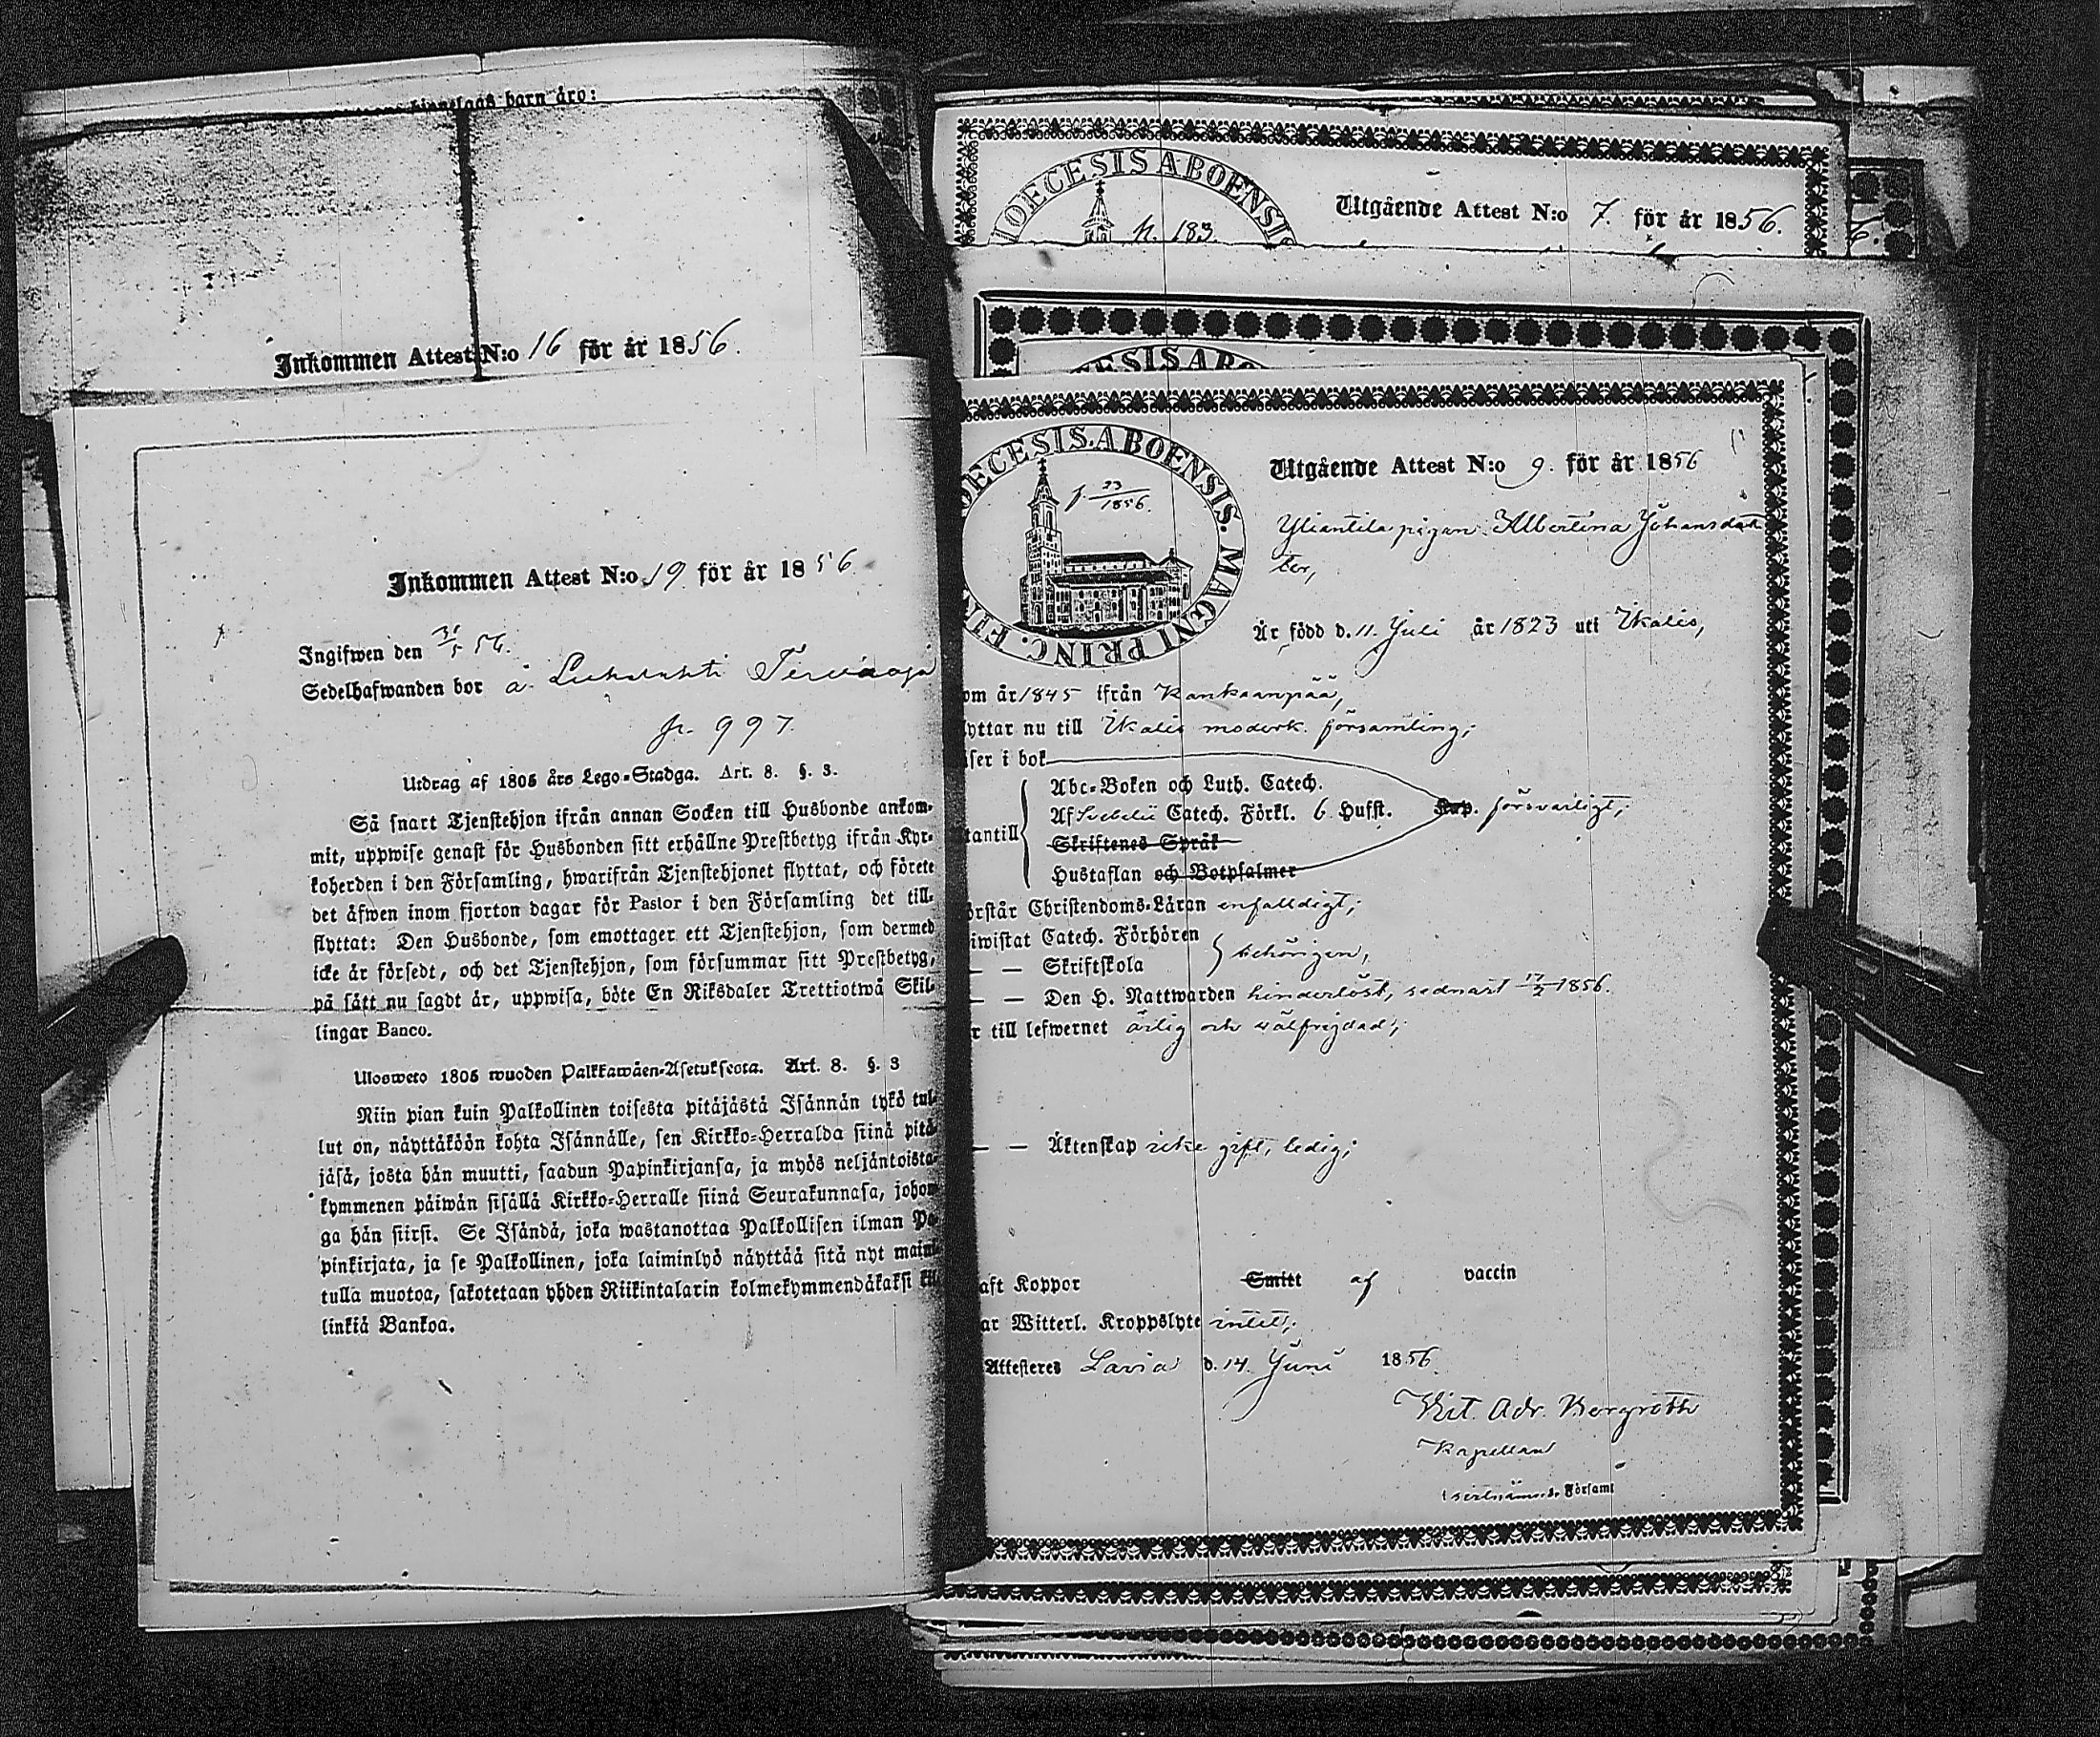 barn äro:
Inkommen Attest N:o 16 för år 1856.
Inkommen Attest N:o 19 för år 1856.
Ingifwen den 31/5 56.
Sedelhafwanden bor å
p. 997.
Utdrag af 1805 års Lego-Stadga. Art. 8. §. 3.
Så snart Tjenstehjon ifrån annan Socken till Husbonde ankom-
mit, uppwise genast för Husbonden sitt erhållne Prestbetyg ifrån Kyr-
koherden i den Församling, hwarifrån Tjenstehjonet flyttat, och förete
det äfwen inom fjorton dagar för Pastor i den Församling det till-
flyttat: Den Husbonde, som emottager ett Tjenstehjon, som dermed
icke är försedt, och det Tjenstehjon, som försummar sitt Prestbetyg,
på sätt nu sagdt är, uppwisa, böte En Riksdaler Trettiotwå Skil-
lingar Banco.
Uloswето 1805 wuoden Palkkawäen-Asetuksesta. Art. 8. §. 3
Niin pian kuin Palkollinen toisesta pitäjästä Isännän tykö tul-
lut on, näyttäköön kohta Isännälle, sen Kirkko-Herralda siinä pitä-
jäsä, josta hän muutti, saadun Papinkirjansa, ja myös neljäntoista-
kymmenen päiwän sisällä Kirkko-Herralle siinä Seurakunnasa, johon-
ga hän siirsi. Se Isändä, joka wastanottaa Palkollisen ilman Pa-
pinkirjata, ja se Palkollinen, joka laiminlyö näyttää sitä nyt maini-
tulla muotoa, sakotetaan yhden Riikintalarin kolmekymmendäkaksi kil-
linkiä Bankoa.
IOECESIS ABOENSIS
p. 183.
Utgående Attest N:o 7. för år 1856.
ESIS ABO
OECESIS. ABOENSIS. MAGNI PRINC. FIN
p. 23/1856.
Utgående Attest N:o 9. för år 1856
Yliantila pigan Albertina Johansdot
ter,
Är född d. 11. Juli år 1823 uti Ikalis,
om år 1845 ifrån Kankaanpää,
yttar nu till Ikalis moderk. församling;
äser i bok
Abc-Boken och Luth. Catech.
Af Svebelii Catech. Förkl. 6 Hufst. försvarligt;
tantill
Skriftenes Språk
Hustaflan och Botpsalmer
örstår Christendoms-Läran enfalldigt;
iwistat Catech. Förhören
— — Skriftskola behörigen,
— — Den H. Nattwarden hinderlöst, sednast 17/2 1856.
r till lefwernet ärlig och wälfrejdad;
— — Äktenskap icke gift, ledig;
aft Koppor Smitt af vaccin
ar Witterl. Kroppslyte intet;
Attesteres Lavia d. 14. Juni 1856
Vict. Adr. Bergroth
Kapellan
Församl